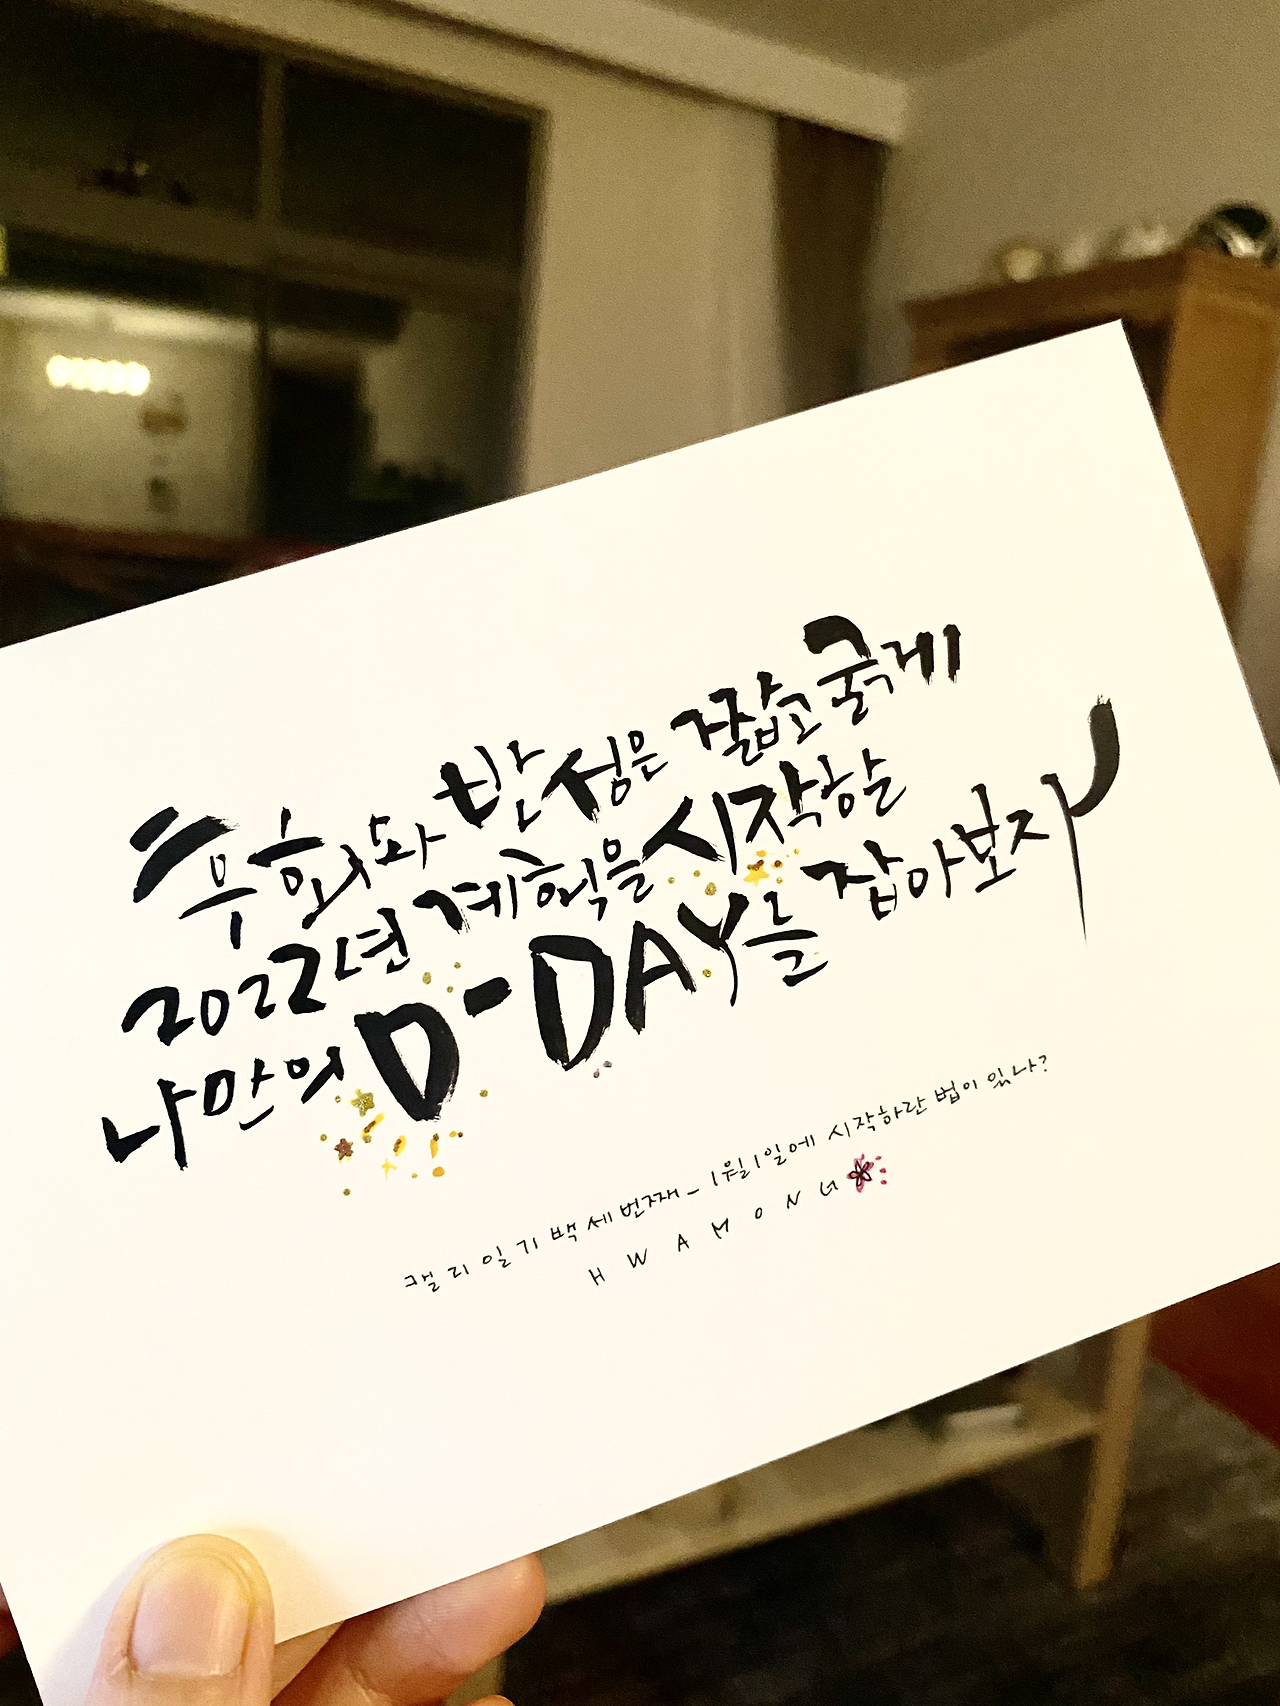 후회와 반성은 짧고 굵게
2022년 계획을 시작할
나만의 D-DAY를 잡아보자
캘리일기 백세번째_ 1월1일에 시작하란 법이 있나?
HWAMONG